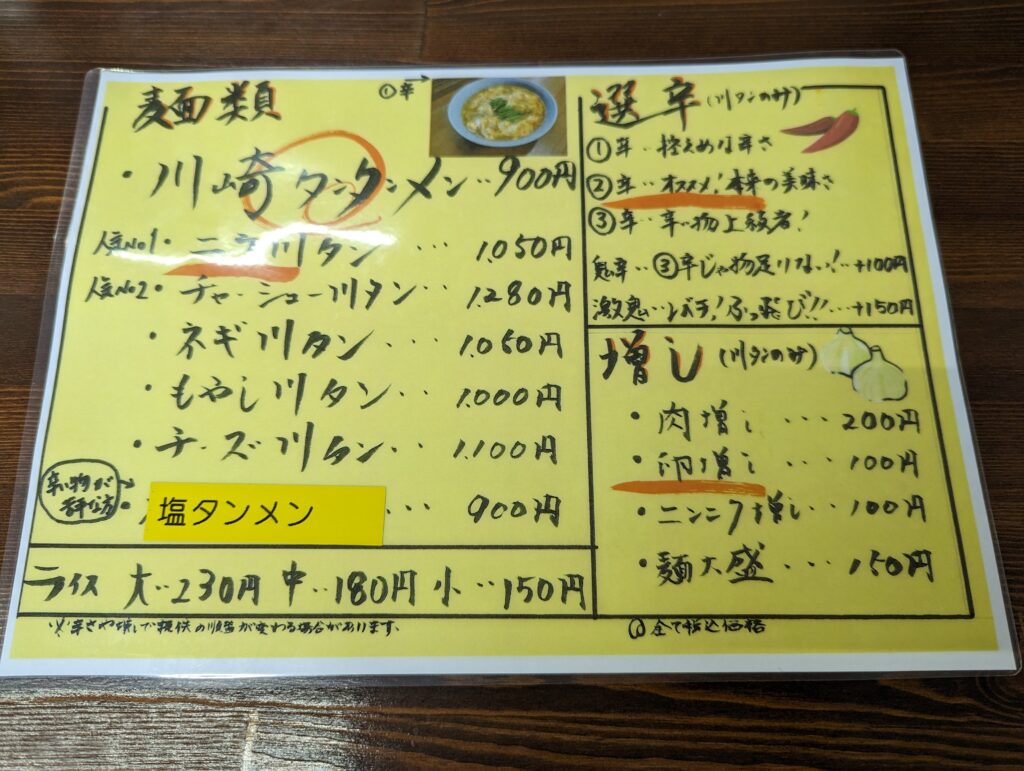 麺類
①辛→
・川崎タンタンメン‥900円
人気No1・ニラ川タン・・・1,050円
人気No2・チャーシュー川タン・・1,280円
・ネギ川タン・・・1,050円
・もやし川タン・・・1,000円
・チーズ川タン・・1,100円
辛い物が苦手な方→
・塩タンメン・・・900円
ライス 大‥230円 中‥180円 小‥150円
※辛さや増しで提供の順番が変わる場合があります。
選辛(川タンのみ)
①辛‥控えめな辛さ
②辛‥オススメ!本来の美味さ
③辛‥辛い物上級者!
鬼辛‥③辛じゃ物足りない!‥+100円
激鬼‥レバチ!ぶっ飛び!!‥+150円
増し(川タンのみ)
・肉増し・・・200円
・卵増し・・・100円
・ニンニク増し・・100円
・麺大盛・・・150円
全て税込価格